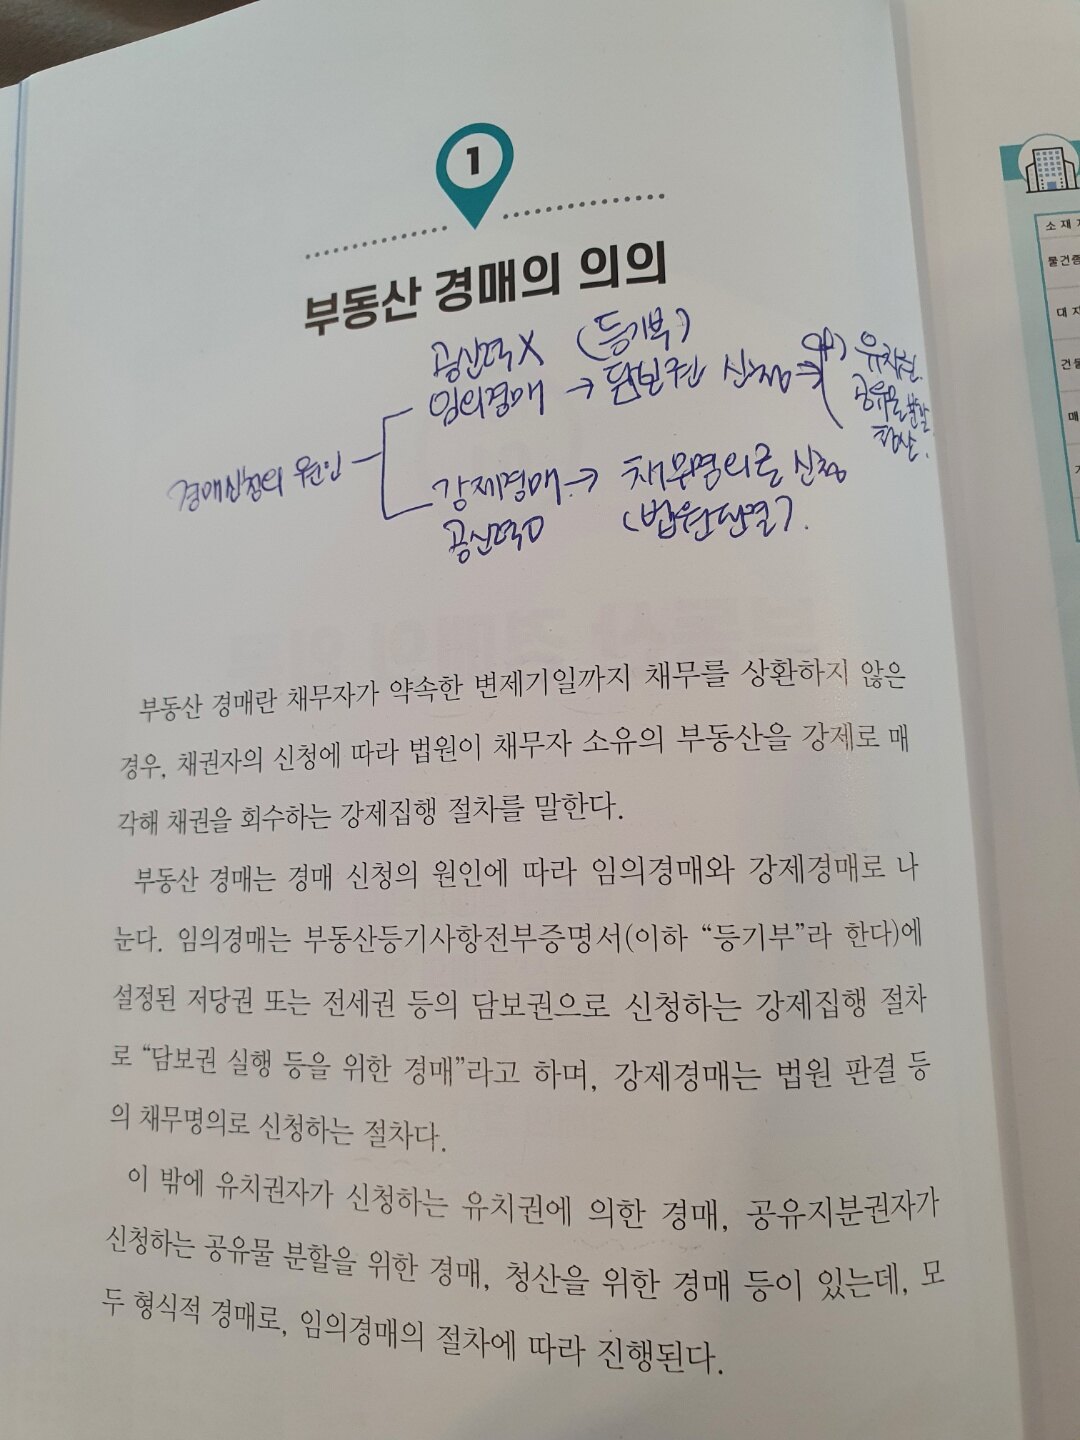 1
부동산 경매의 의의
공신력X (등기부)
임의경매 → 담보권 신청
유치권.
공유물분할
청산.
경매신청의 원인
강제경매 → 채무명의로 신청
공신력O (법원판결).
부동산 경매란 채무자가 약속한 변제기일까지 채무를 상환하지 않은
경우, 채권자의 신청에 따라 법원이 채무자 소유의 부동산을 강제로 매
각해 채권을 회수하는 강제집행 절차를 말한다.
부동산 경매는 경매 신청의 원인에 따라 임의경매와 강제경매로 나
눈다. 임의경매는 부동산등기사항전부증명서(이하 “등기부”라 한다)에
설정된 저당권 또는 전세권 등의 담보권으로 신청하는 강제집행 절차
로 “담보권 실행 등을 위한 경매”라고 하며, 강제경매는 법원 판결 등
의 채무명의로 신청하는 절차다.
이 밖에 유치권자가 신청하는 유치권에 의한 경매, 공유지분권자가
신청하는 공유물 분할을 위한 경매, 청산을 위한 경매 등이 있는데, 모
두 형식적 경매로, 임의경매의 절차에 따라 진행된다.
소 재
물건종
대 지
건물
매